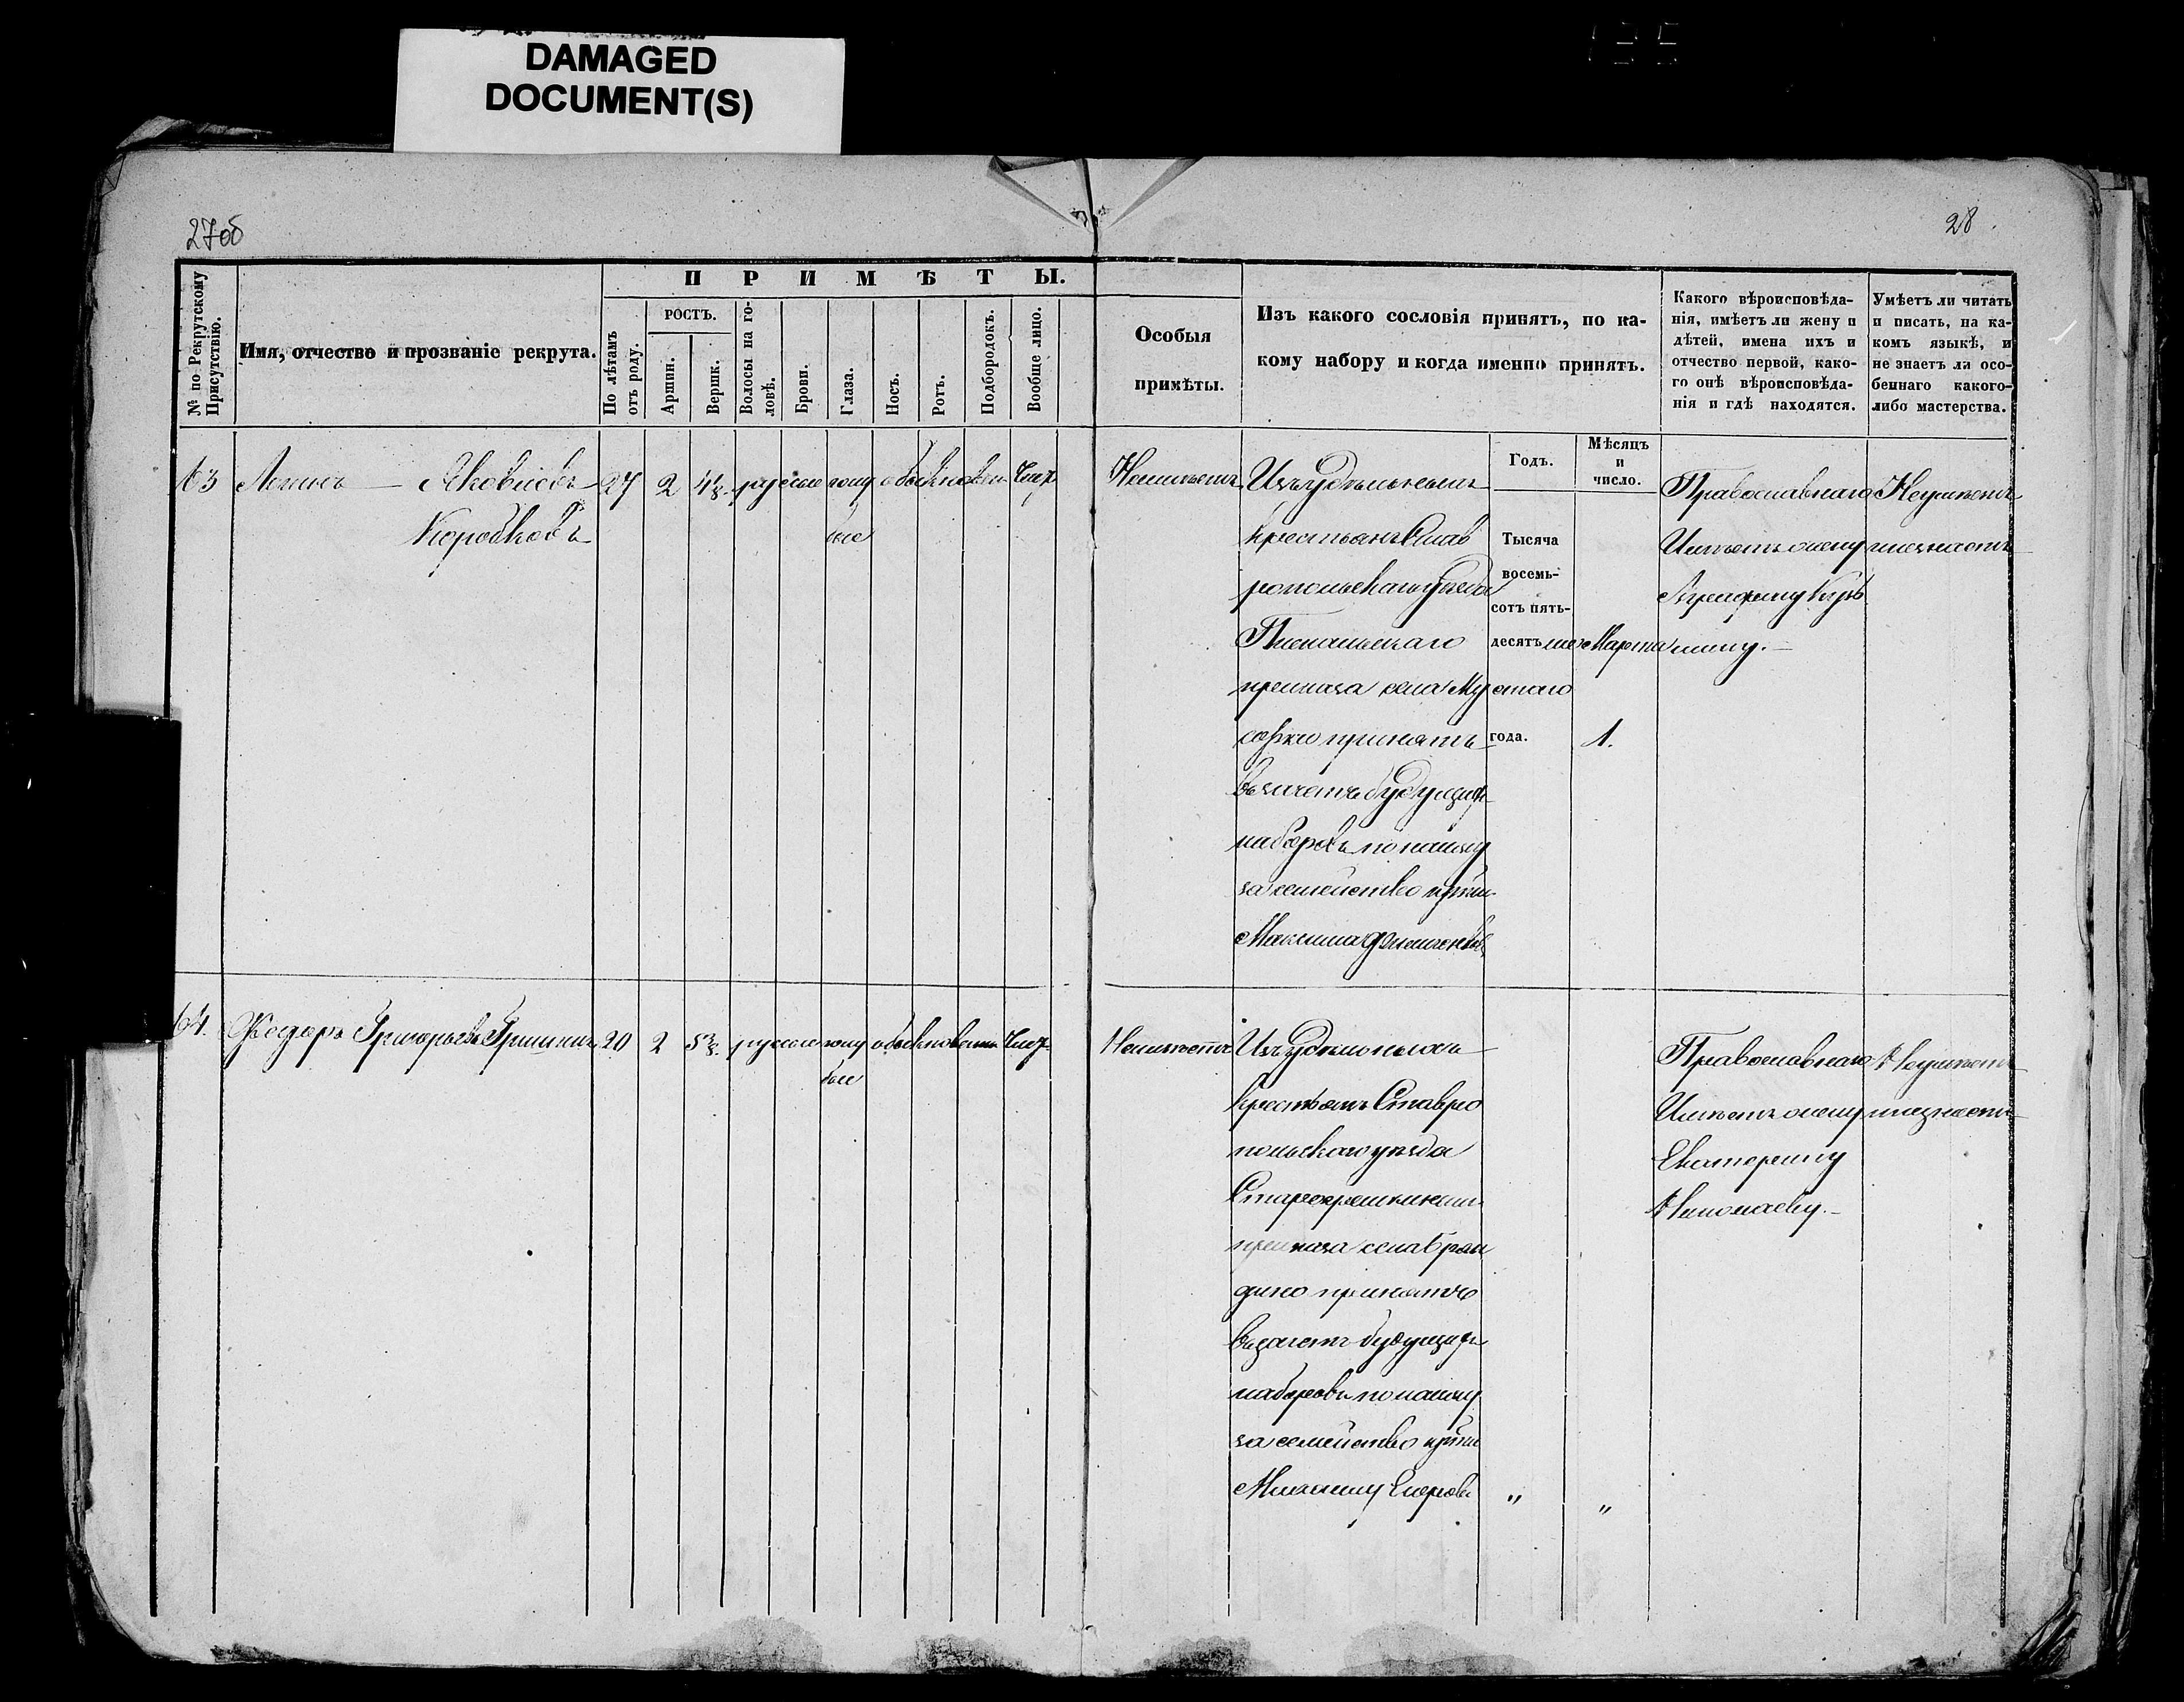 DAMAGED
DOCUMENT(S)
27об
28
№ по Рекрутскому Присутствію.
Имя, отчество и прозваніе рекрута.
ПРИМѢТЫ.
По лѣтамъ отъ роду.
РОСТЪ.
Аршин.
Вершк.
Волосы на головѣ.
Брови.
Глаза.
Носъ.
Ротъ.
Подбородокъ.
Вообще лицо.
Особыя
примѣты.
Изъ какого сословія принятъ, по ка-
кому набору и когда именно принятъ.
Какого вѣроисповѣда-
нія, имѣетъ ли жену и
дѣтей, имена ихъ и
отчество первой, како-
го онѣ вѣроисповѣда-
нія и гдѣ находятся.
Умѣетъ ли читать
и писать, на ка-
комъ языкѣ, и
не знаетъ ли осо-
беннаго какого-
либо мастерства.
Годъ.
Мѣсяцъ
и
число.
63
Яковлевъ
Коробковъ
27 2 4 русые голу обыкновен Чист
бые
Неимѣетъ
Изъ удѣльныхъ
крестьянъ Став
ропольскаго уѣзда
приказа села Му
сорки принятъ
въ зачетъ будущихъ
наборовъ по найму
за семейство крѣн
Максима
Тысяча
восемь-
сотъ пять-
десятъ шес
таго
года.
Марта
1.
Православнаго
Имѣетъ жену
мину.
Неумѣетъ
и незнаетъ
64.
Федоръ Григорьевъ Гришинъ
20 2 5 3/8. русые голу обыкновенн Чист
бые
Неимѣетъ
Изъ удѣльныхъ
крестьянъ Ставро
польскаго уѣзда
приказа села Бран
дино принятъ
въ зачетъ будущихъ
наборовъ по найму
за семейство крѣн
Егорова
" "
Православнаго
Имѣетъ жену
Екатерину
Николаеву.
Неумѣетъ
и незнаетъ